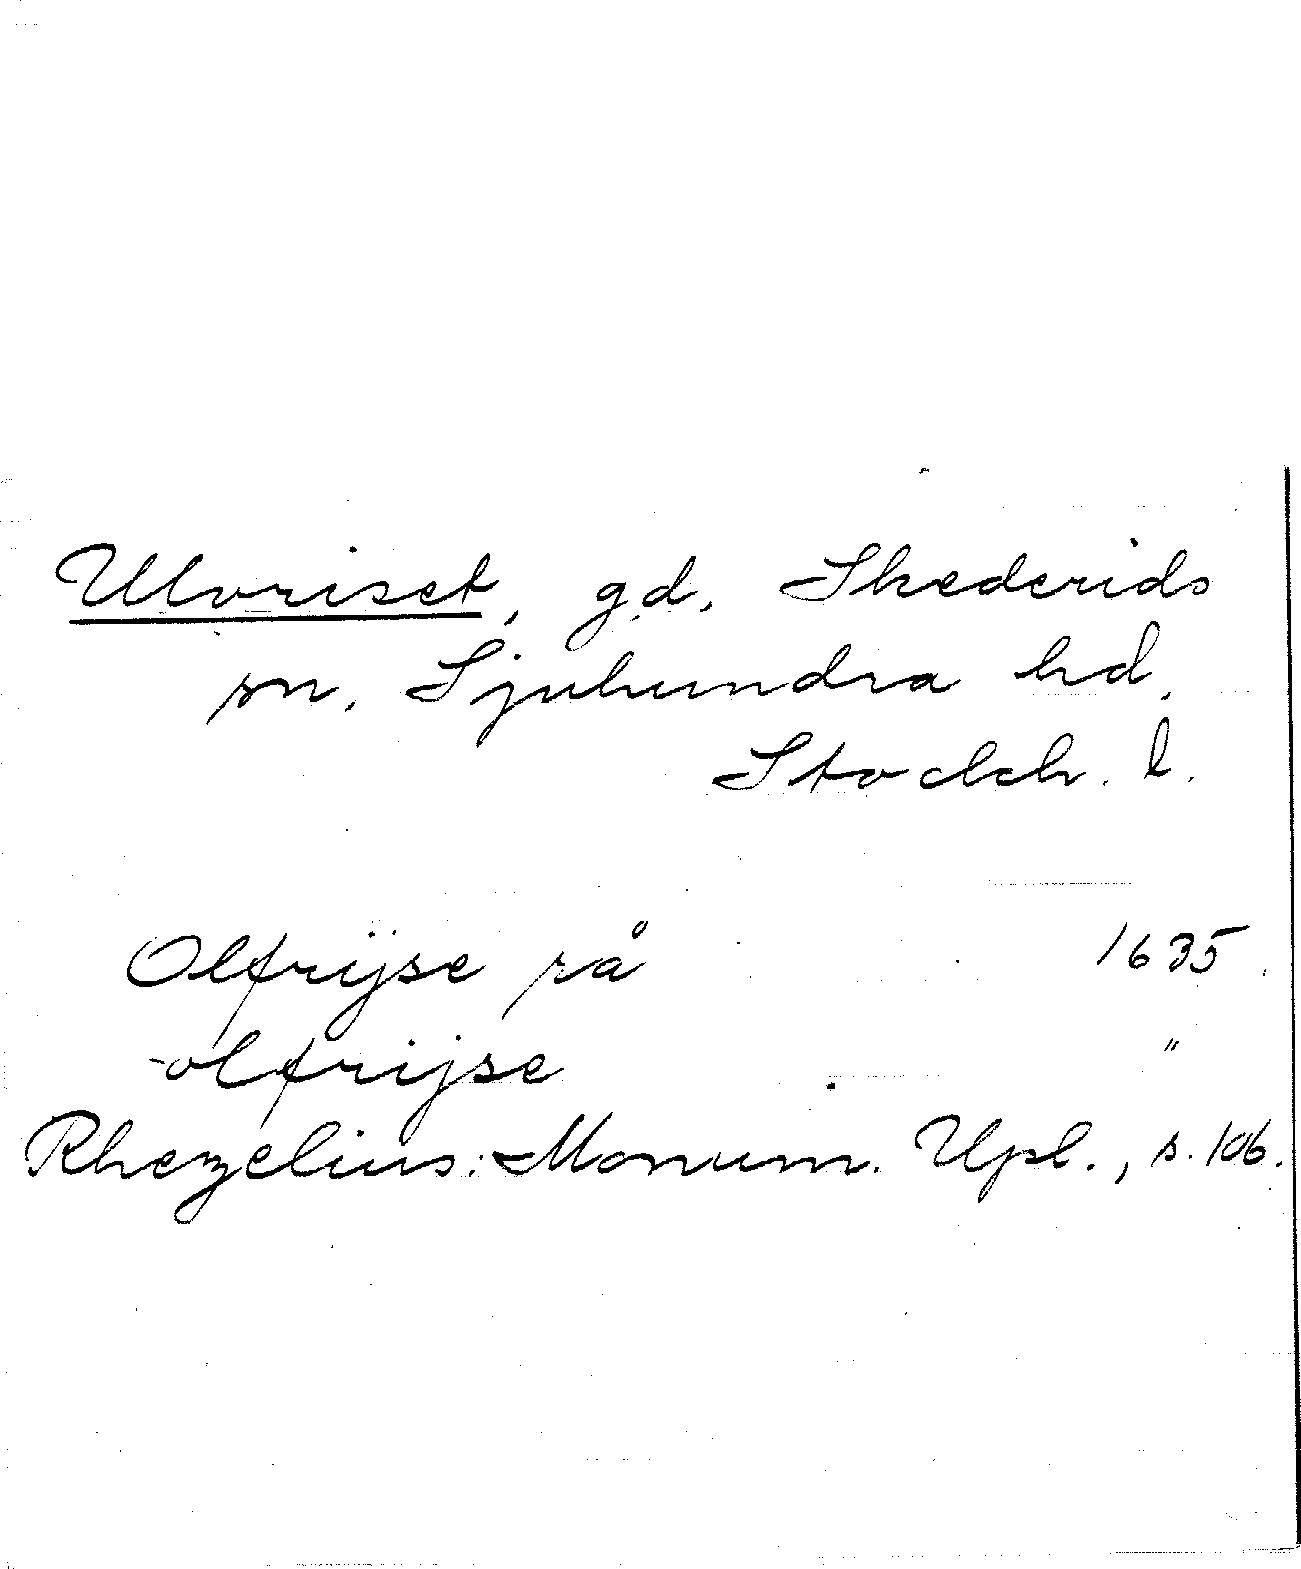 Ulvriset, gd, Skederids
sn, Sjuhundra hd,
Stockh. l.
Olfrijse rå 1635
olfrijse "
Rhezelius: Monum. Upl., s. 106.